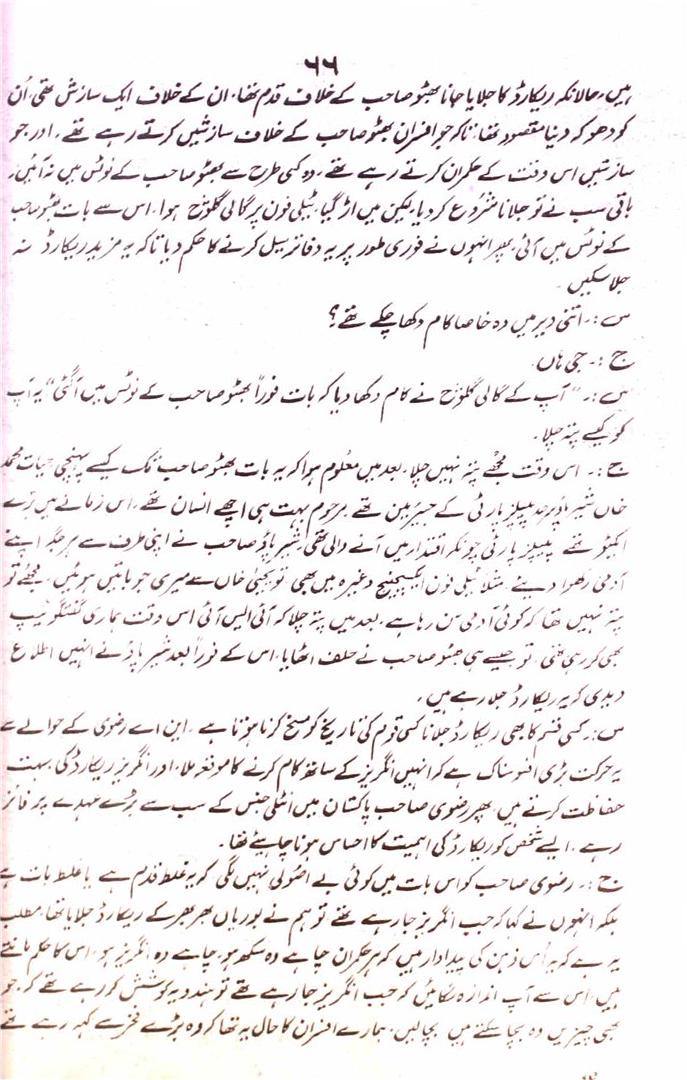 ۶۶
ہیں، حالانکہ ریکارڈ کا جلایا جانا بھٹو صاحب کے خلاف قدم تھا، ان کے خلاف ایک سازش تھی، اُن
کو دھوکہ دینا مقصود تھا، تاکہ جو افسران بھٹو صاحب کے خلاف سازشیں کرتے رہے تھے، اور جو
سازشیں اس وقت کے حکمران کرتے رہے تھے، وہ کسی طرح سے بھٹو صاحب کے نوٹس میں نہ آئیں،
باقی سب نے تو جلانا شروع کر دیا، لیکن میں اڑ گیا، ٹیلی فون پر گالی گلوچ ہوا، اس سے بات بھٹو صاحب
کے نوٹس میں آئی، پھر انہوں نے فوری طور پر یہ دفاتر سیل کرنے کا حکم دیا تاکہ یہ مزید ریکارڈ نہ
جلا سکیں۔
س:۔ اتنی دیر میں وہ خاصا کام دکھا چکے تھے؟
ج:۔ جی ہاں۔
س:۔ "آپ کے گالی گلوچ نے کام دکھا دیا کہ بات فوراً بھٹو صاحب کے نوٹس میں آ گئی" یہ آپ
کو کیسے پتہ چلا۔
ج:۔ اس وقت مجھے پتہ نہیں چلا، بعد میں معلوم ہوا کہ یہ بات بھٹو صاحب تک کیسے پہنچی، حیات محمد
خاں شیر پاؤ سرحد پیپلز پارٹی کے چیئرمین تھے مرحوم بہت ہی اچھے انسان تھے، اس زمانے میں بڑے
ایکٹو تھے پیپلز پارٹی چونکہ اقتدار میں آنے والی تھی، شیر پاؤ صاحب نے اپنی طرف سے ہر جگہ اپنے
آدمی رکھوا دیئے، مثلاً ٹیلی فون ایکسچینج وغیرہ میں بھی، تو یحییٰ خاں سے میری جو باتیں ہوئیں، مجھے تو
پتہ نہیں تھا کہ کوئی آدمی سن رہا ہے، بعد میں پتہ چلا کہ آئی ایس آئی اس وقت ہماری گفتگو ٹیپ
بھی کر رہی تھی، تو جیسے ہی بھٹو صاحب نے حلف اٹھایا، اس کے فوراً بعد شیر پاؤ نے انہیں اطلاع
دیدی کہ یہ ریکارڈ جلا رہے ہیں۔
س:۔ کسی قسم کا بھی ریکارڈ جلانا کسی قوم کی تاریخ کو مسخ کرنا ہوتا ہے، این اے رضوی کے حوالے سے
یہ حرکت بڑی افسوسناک ہے کہ انہیں انگریز کے ساتھ کام کرنے کا موقعہ ملا، اور انگریز ریکارڈ کی بہت
حفاظت کرتے ہیں، پھر رضوی صاحب پاکستان میں انٹلی جنس کے سب سے بڑے عہدے پر فائز
رہے، ایسے شخص کو ریکارڈ کی اہمیت کا احساس ہونا چاہیئے تھا۔
ج:۔ رضوی صاحب کو اس بات میں کوئی بے اصولی نہیں لگی کہ یہ غلط قدم ہے یا غلط بات ہے
بلکہ انہوں نے کہا کہ جب انگریز جا رہے تھے تو ہم نے بوریاں بھر بھر کے ریکارڈ جلایا تھا، مطلب
یہ ہے کہ یہ اُس ذہن کی پیداوار ہیں کہ ہر حکمران چاہے وہ سکھ ہو، چاہے وہ انگریز ہو، اس کا حکم مانتے
ہیں، اس سے آپ اندازہ لگائیں کہ جب انگریز جا رہے تھے تو ہندو یہ کوشش کر رہے تھے کہ جو
بھی چیزیں وہ بچا سکتے ہیں بچا لیں، ہمارے افسران کا حال یہ تھا کہ وہ بڑے فخر سے کہہ رہے تھے